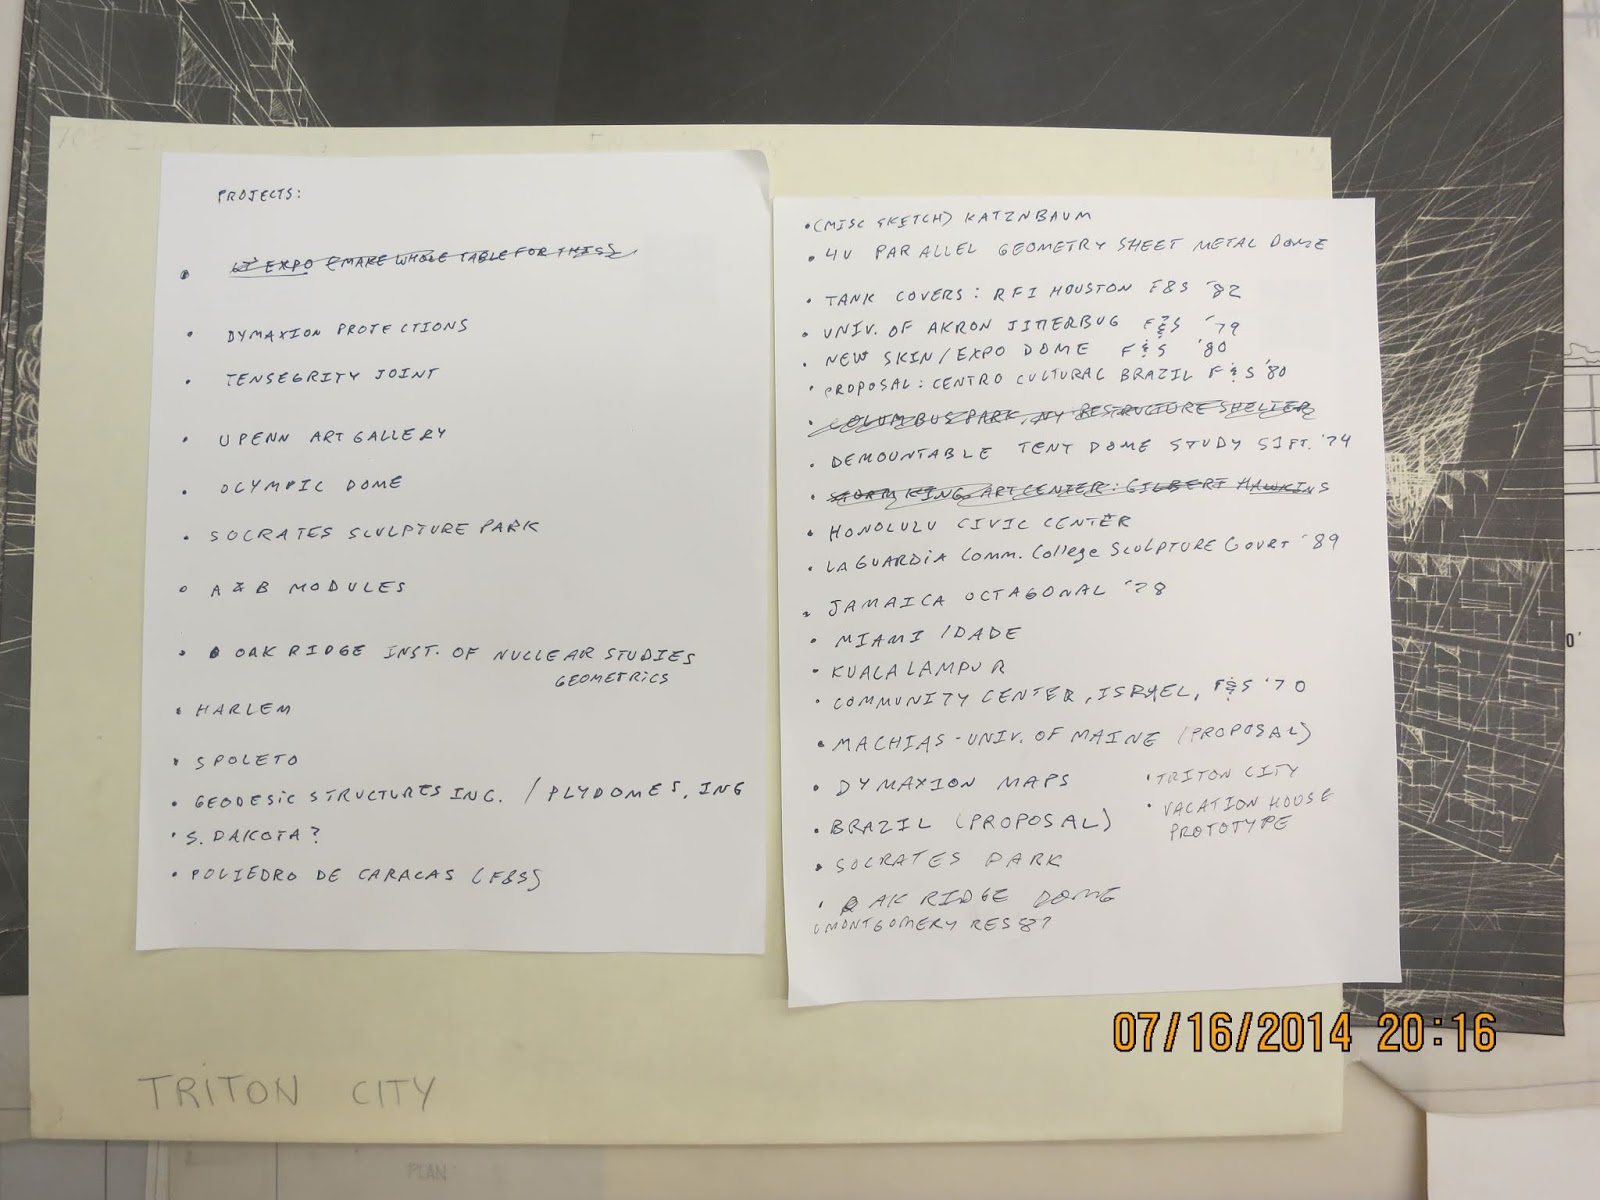 PROJECTS:
• 67 EXPO (MAKE WHOLE TABLE FOR THIS)
• DYMAXION PROTECTIONS
• TENSEGRITY JOINT
• UPENN ART GALLERY
• OLYMPIC DOME
• SOCRATES SCULPTURE PARK
• A & B MODULES
• OAK RIDGE INST. OF NUCLEAR STUDIES
GEOMETRICS
• HARLEM
• SPOLETO
• GEODESIC STRUCTURES INC. / PLYDOMES, ING
• S. DAKOTA?
• POLIEDRO DE CARACAS (F&S)
• (MISC SKETCH) KATZNBAUM
• 4V PARALLEL GEOMETRY SHEET METAL DOME
• TANK COVERS: RFI HOUSTON F&S '82
• UNIV. OF AKRON JITTERBUG F&S '79
• NEW SKIN/EXPO DOME F&S '80
• PROPOSAL: CENTRO CULTURAL BRAZIL F&S '80
• COLUMBUS PARK, NY RESTRUCTURE SHELTER
• DEMOUNTABLE TENT DOME STUDY 51FT. '74
• STORM KING ART CENTER: GILBERT HAWKINS
• HONOLULU CIVIC CENTER
• LAGUARDIA COMM. COLLEGE SCULPTURE COURT '89
• JAMAICA OCTAGONAL '78
• MIAMI/DADE
• KUALA LAMPUR
• COMMUNITY CENTER, ISRAEL, F&S '70
• MACHIAS-UNIV. OF MAINE (PROPOSAL)
• DYMAXION MAPS
• BRAZIL (PROPOSAL)
• SOCRATES PARK
• OAK RIDGE DOME
(MONTGOMERY RES 87
• TRITON CITY
• VACATION HOUSE
PROTOTYPE
07/16/2014 20:16
TRITON CITY
PLAN
0'